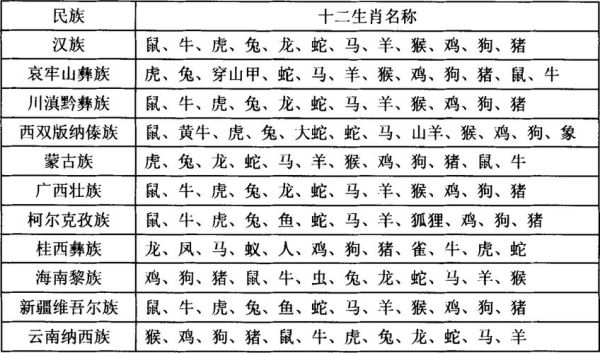 民族 十二生肖名称
汉族 鼠、牛、虎、兔、龙、蛇、马、羊、猴、鸡、狗、猪
哀牢山彝族 虎、兔、穿山甲、蛇、马、羊、猴、鸡、狗、猪、鼠、牛
川滇黔彝族 鼠、牛、虎、兔、龙、蛇、马、羊、猴、鸡、狗、猪
西双版纳傣族 鼠、黄牛、虎、兔、大蛇、蛇、马、山羊、猴、鸡、狗、象
蒙古族 虎、兔、龙、蛇、马、羊、猴、鸡、狗、猪、鼠、牛
广西壮族 鼠、牛、虎、兔、龙、蛇、马、羊、猴、鸡、狗、猪
柯尔克孜族 鼠、牛、虎、兔、鱼、蛇、马、羊、狐狸、鸡、狗、猪
桂西彝族 龙、凤、马、蚁、人、鸡、狗、猪、雀、牛、虎、蛇
海南黎族 鸡、狗、猪、鼠、牛、虫、兔、龙、蛇、马、羊、猴
新疆维吾尔族 鼠、牛、虎、兔、鱼、蛇、马、羊、猴、鸡、狗、猪
云南纳西族 猴、鸡、狗、猪、鼠、牛、虎、兔、龙、蛇、马、羊